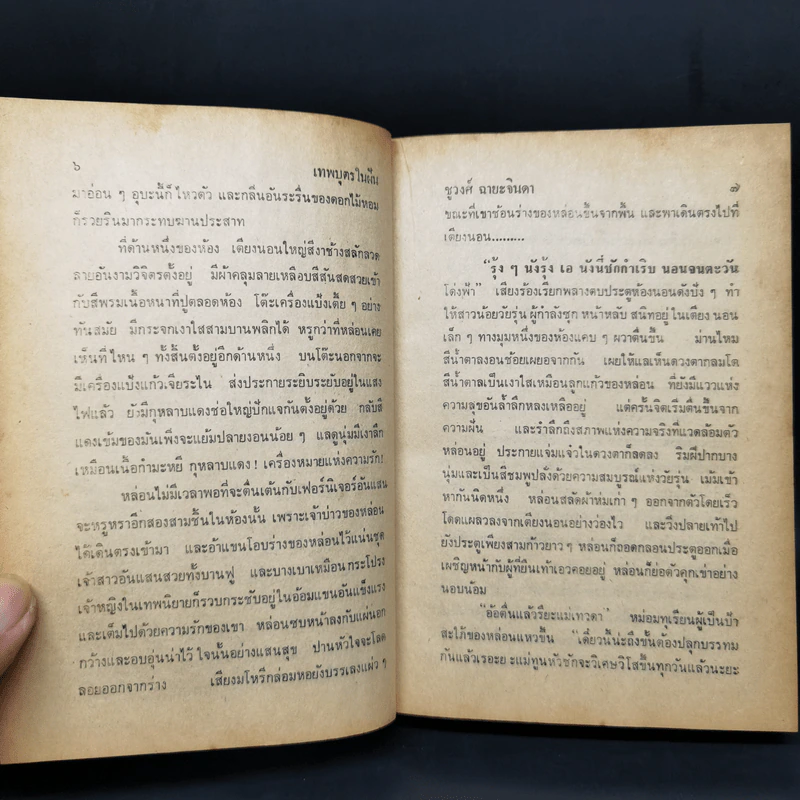 ๖
เทพบุตรในฝัน
มาอ่อน ๆ อุบะนี้ก็ไหวตัว และกลิ่นอันระรื่นของดอกไม้หอม
ก็รวยรินมากระทบฆานประสาท
ที่ด้านหนึ่งของห้อง เตียงนอนใหญ่สีงาช้างสลักลวด
ลายอันงามวิจิตรตั้งอยู่ มีผ้าคลุมลายเหลือบสีสันสดสวยเข้า
กับสีพรมเนื้อหนาที่ปูตลอดห้อง โต๊ะเครื่องแป้งเตี้ย ๆ อย่าง
ทันสมัย มีกระจกเงาใสสามบานพลิกได้ หรูกว่าที่หล่อนเคย
เห็นที่ไหน ๆ ทั้งสิ้นตั้งอยู่อีกด้านหนึ่ง บนโต๊ะนอกจากจะ
มีเครื่องแป้งแก้วเจียระไน ส่งประกายระยิบระยับอยู่ในแสง
ไฟแล้ว ยังมีกุหลาบแดงช่อใหญ่ปักแจกันตั้งอยู่ด้วย กลีบสี
แดงเข้มของมันเพิ่งจะแย้มปลายงอนน้อย ๆ แลดูนุ่มมีเงาลึก
เหมือนเนื้อกำมะหยี่ กุหลาบแดง! เครื่องหมายแห่งความรัก!
หล่อนไม่มีเวลาพอที่จะตื่นเต้นกับเฟอร์นิเจอร์อันแสน
จะหรูหราอีกสองสามชิ้นในห้องนั้น เพราะเจ้าบ่าวของหล่อน
ได้เดินตรงเข้ามา และอ้าแขนโอบร่างของหล่อนไว้แน่นชุด
เจ้าสาวอันแสนสวยทั้งบานฟู และบางเบาเหมือนกระโปรง
เจ้าหญิงในเทพนิยายก็รวบกระชับอยู่ในอ้อมแขนอันแข็งแรง
และเต็มไปด้วยความรักของเขา หล่อนซบหน้าลงกับแผ่นอก
กว้างและอบอุ่นน่าไว้ใจนั้นอย่างแสนสุข ปานหัวใจจะโลด
ลอยออกจากร่าง เสียงมโหรีกล่อมหอยังบรรเลงแผ่ว ๆ
ชูวงศ์ ฉายะจินดา
๗
ขณะที่เขาช้อนร่างของหล่อนขึ้นจากพื้น และพาเดินตรงไปที่
เตียงนอน.........
“รุ้ง ๆ นังรุ้ง เอ นังนี่ชักกำเริบ นอนจนตะวัน
โด่งฟ้า” เสียงร้องเรียกพลางตบประตูห้องนอนดังปัง ๆ ทำ
ให้สาวน้อยวัยรุ่น ผู้กำลังซุก หน้าหลับ สนิทอยู่ ในเตียง นอน
เล็ก ๆ ทางมุมหนึ่งของห้องแคบ ๆ ผวาตื่นขึ้น ม่านไหม
สีน้ำตาลงอนช้อยเผยอจากกัน เผยให้แลเห็นดวงตากลมโต
สีน้ำตาลเป็นเงาใสเหมือนลูกแก้วของหล่อน ที่ยังมีแววแห่ง
ความสุขอันล้ำลึกหลงเหลืออยู่ แต่ครั้นจิตเริ่มตื่นขึ้นจาก
ความฝัน และรำลึกถึงสภาพแห่งความจริงที่แวดล้อมตัว
หล่อนอยู่ ประกายแจ่มแจ๋วในดวงตาก็ลดลง ริมฝีปากบาง
นุ่มและเป็นสีชมพูปลั่งด้วยความสมบูรณ์แห่งวัยรุ่น เม้มเข้า
หากันนิดหนึ่ง หล่อนสลัดผ้าห่มเก่า ๆ ออกจากตัวโดยเร็ว
โดดแผลวลงจากเตียงนอนอย่างว่องไว และวิ่งปลายเท้าไป
ยังประตูเพียงสามก้าวยาว ๆ หล่อนก็ถอดกลอนประตูออกเมื่อ
เผชิญหน้ากับผู้ที่ยืนเท้าเอวคอยอยู่ หล่อนก็ย่อตัวคุกเข่าอย่าง
นอบน้อม
“อ้อตื่นแล้วรึยะแม่เทวดา” หม่อมทุเรียนผู้เป็นป้า
สะใภ้ของหล่อนแหวขึ้น “เดี๋ยวนี้น่ะถึงชั้นต้องปลุกบรรทม
กันแล้วเรอะยะ แม่ทูนหัวชักจะวิเศษวิโสขึ้นทุกวันแล้วนะยะ